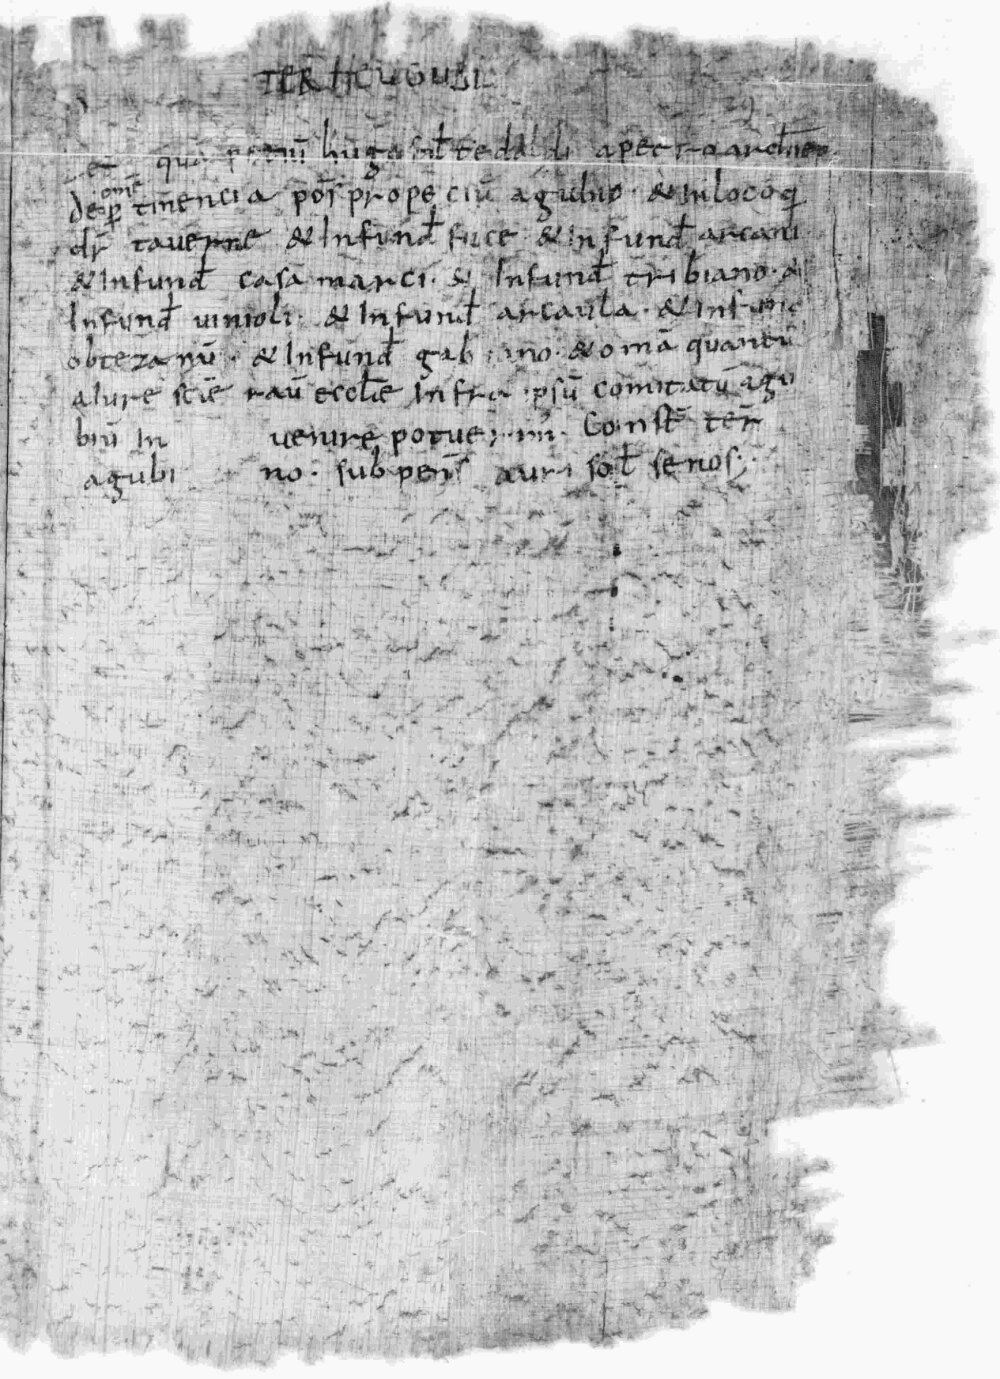 TER̄ HEUGUBI
Pet quā petiū huga fil̄ tedaldi a petro archiep̄
de omē p̱tinencia pos̄ prope ciū agubio · & in loco q̱
dr̄ tauerne & In fund̄ fuce · & In fund̄ arcani
& In fund̄ casa marci · & In fund̄ tribiano · &
In fund̄ uinioli · & In fund̄ arcaula · & In fund
obtezanū · & In fund̄ gabiano · & omā quantū
a iure scē rau ecclē Infra ipsū comitatū agu
biū In uenire potuerim · Const̄ ter̄
agubi no · sub pens̄ auri sol̄ senos ;